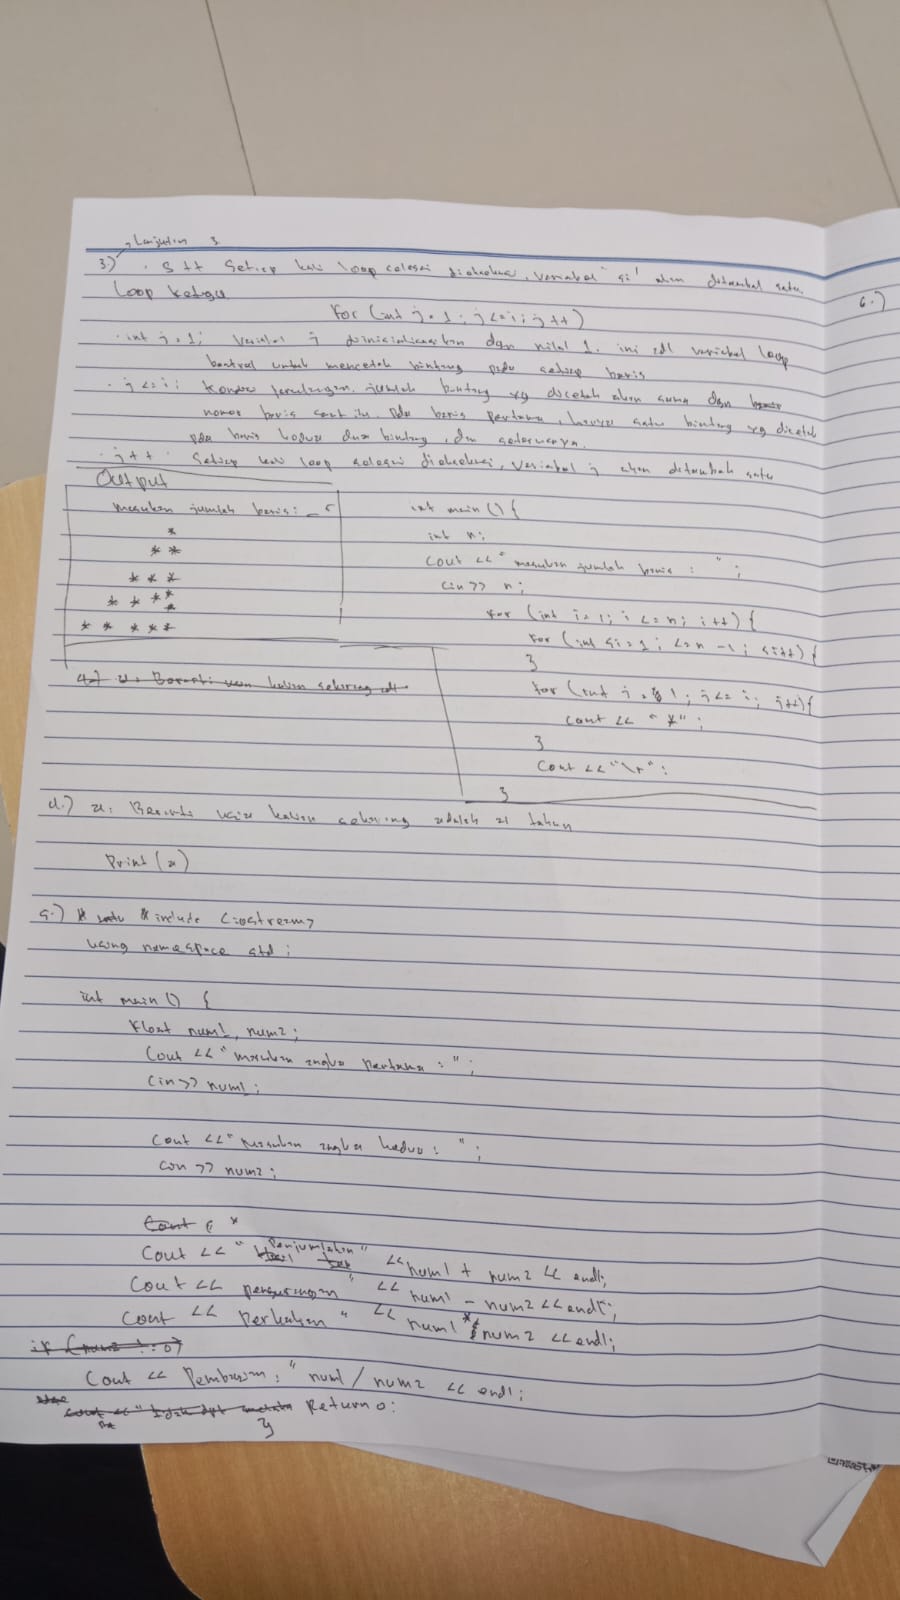 → Lanjutan 3.
3.) . S++ Setiap kali loop selesai dieksekusi, variabel "si" akan ditambah satu.
Loop ketiga
for (int j = 1; j <= i; j++)
. int j = 1; Variabel j diinisialisasikan dgn nilai 1. ini adl variabel loop
kontrol untuk mencetak bintang pada setiap baris
. j <= i; Kondisi perulangan. jumlah bintang yg dicetak akan sama dgn
nomor baris saat itu. pda baris pertama, hanya satu bintang yg dicetak
pda baris kedua dua bintang, dan seterusnya.
. j++ Setiap kali loop selesai dieksekusi, variabel j akan ditambah satu
Output
masukan jumlah baris: _ 5
*
* *
* * *
* * * *
* * * * *
int main () {
int n;
cout << "masukan jumlah baris : ";
cin >> n;
for (int i = 1; i <= n; i++) {
for (int si = 1; <= n - 1; si++) {
}
for (int j = 1; j <= i; j++) {
cout << "*";
}
cout << "\r";
}
4.) a. Berarti usia kalian sekarang adalah 21 tahun
Print (a)
5.) # include <iostream>
using namespace std;
int main () {
float num1, num2;
Cout << "masukan angka pertama : ";
Cin >> num1;
Cout << "masukan angka kedua : ";
con >> num2;
Cout << "Penjumlahan" << num1 + num2 << endl;
Cout << pengurangan " << num1 - num2 << endl;
Cout << Perkalian " << num1 * num2 << endl;
Cout << Pembagian : " num1 / num2 << endl;
Return 0;
}
6.)